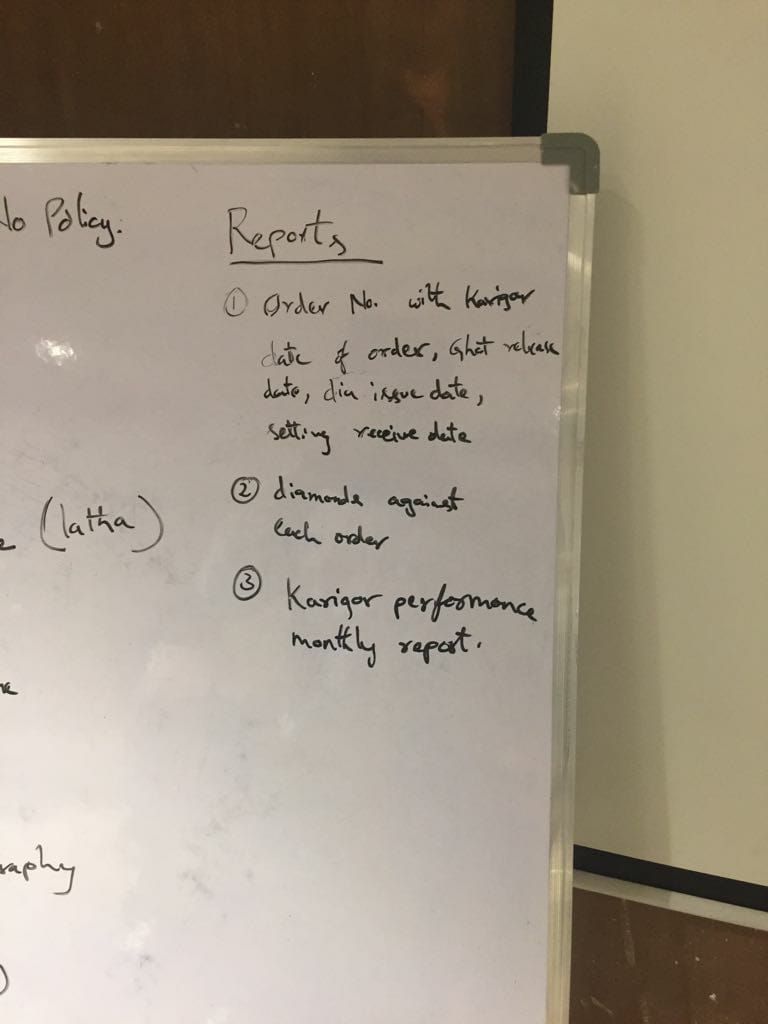 No Policy.
Reports
① Order No. with Karigor
date of order, Ghat release
date, dia issue date,
setting receive date
② diamonds against
each order
③ Karigor performance
monthly report.
(latha)
raphy
)